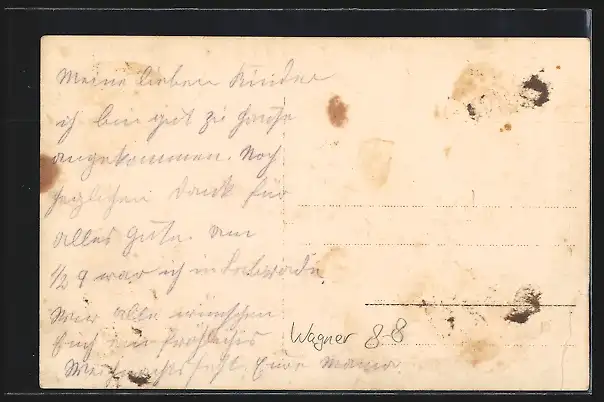 Meine lieben Kinder
ich bin gut zu Hause
angekommen. Noch
herzlichen Dank für
alles Gute. Um
1/2 9 war ich in
Wir alle wünschen
Euch ein fröhliches
Weihnachtsfest. Eure Mama
Wagner 8-8